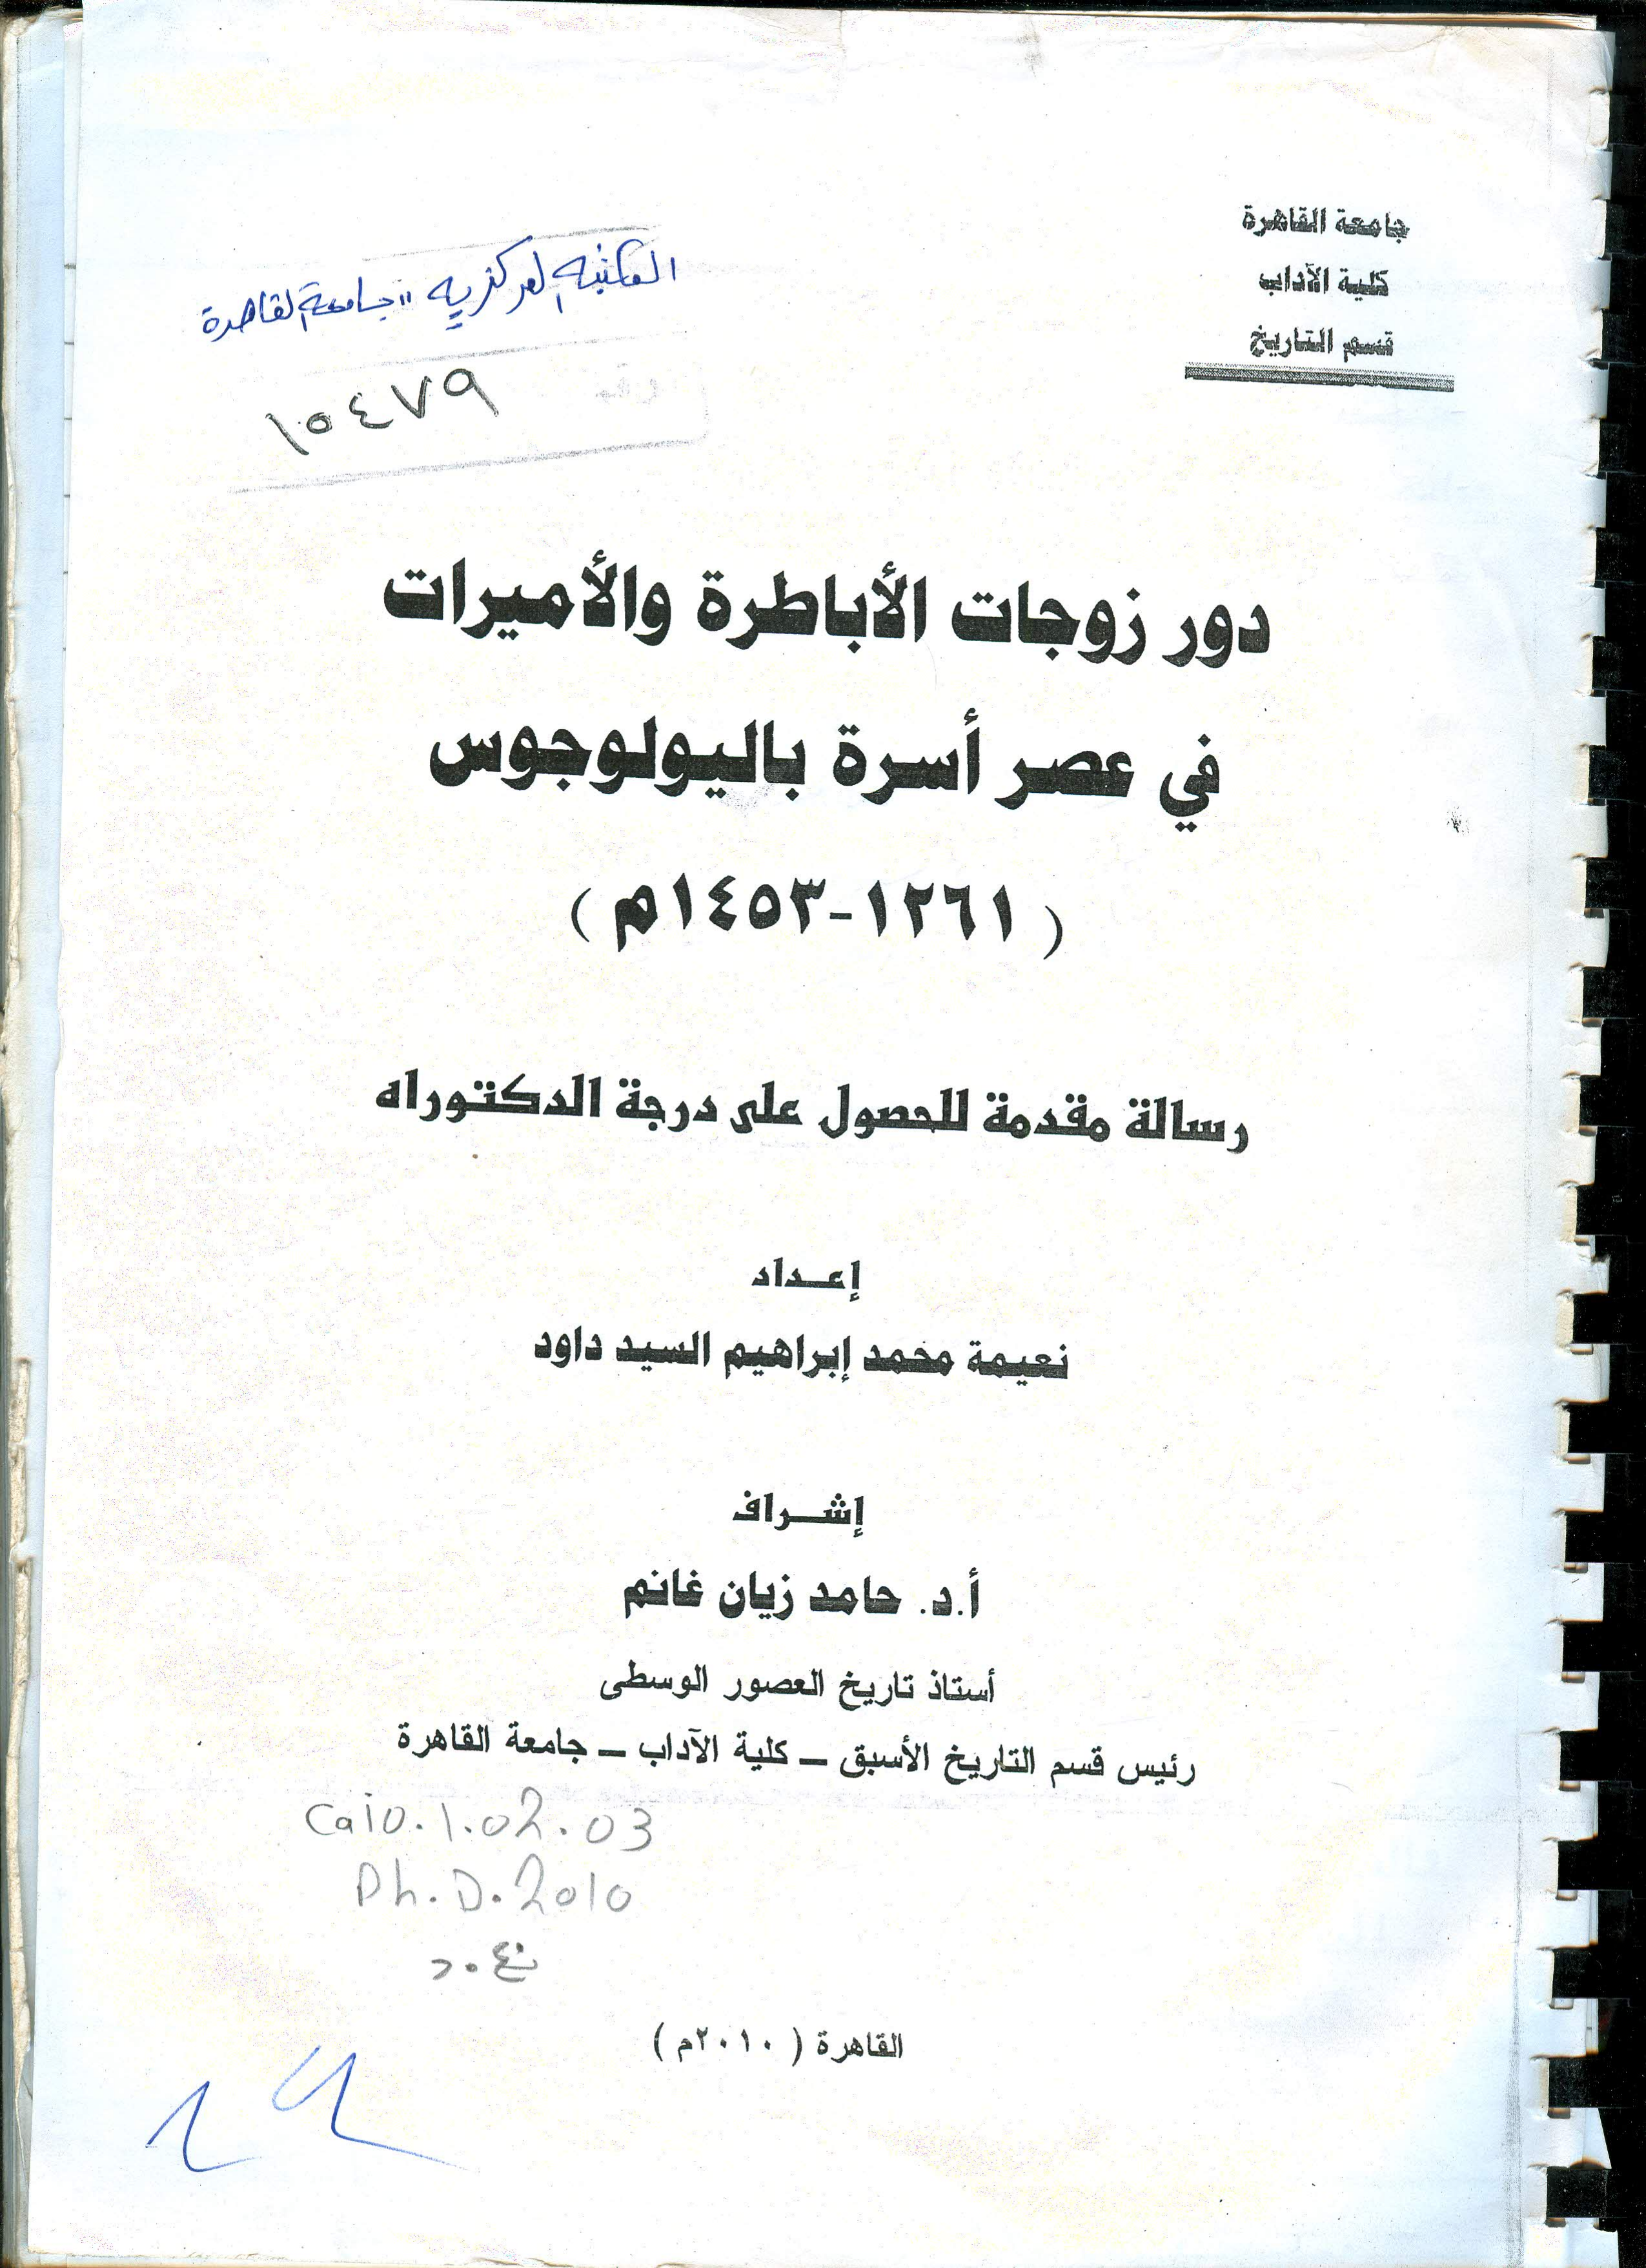 جامعة القاهرة
كلية الآداب
قسم التاريخ
المكتبة المركزية "جامعة القاهرة
١٥٤٧٩
دور زوجات الأباطرة والأميرات
في عصر أسرة باليولوجوس
( ١٢٦١-١٤٥٣م )
رسالة مقدمة للحصول على درجة الدكتوراه
إعـداد
نعيمة محمد إبراهيم السيد داود
إشـراف
أ.د. حامد زيان غانم
أستاذ تاريخ العصور الوسطى
رئيس قسم التاريخ الأسبق – كلية الآداب – جامعة القاهرة
Cai0.1.02.03
Ph.D.2010
القاهرة ( ٢٠١٠م )